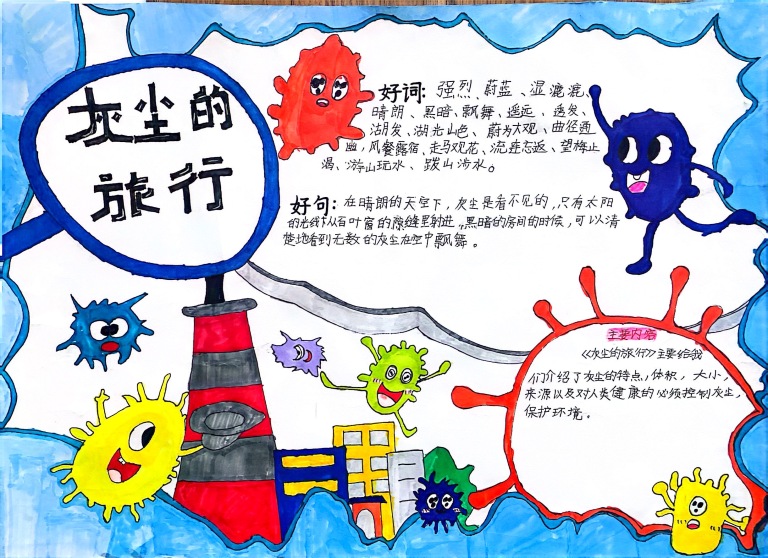 灰尘的
旅行
好词：强烈、蔚蓝、湿漉漉、
晴朗、黑暗、飘舞、遥远、透发、
沽朋发、湖光山色、蔚为大观、曲径通
幽，风餐露宿、走马观花、流连忘返、望梅止
渴、游山玩水、跋山涉水。
好句：在晴朗的天空下，灰尘是看不见的，只有太阳
的光线下从百叶窗的隙缝里射进，黑暗的房间的时候，可以清
楚地看到无数的灰尘在空中飘舞。
主要内容
《灰尘的旅行》主要给我
们介绍了灰尘的特点，体积，大小，
来源以及对人类健康的必须控制灰尘，
保护环境。